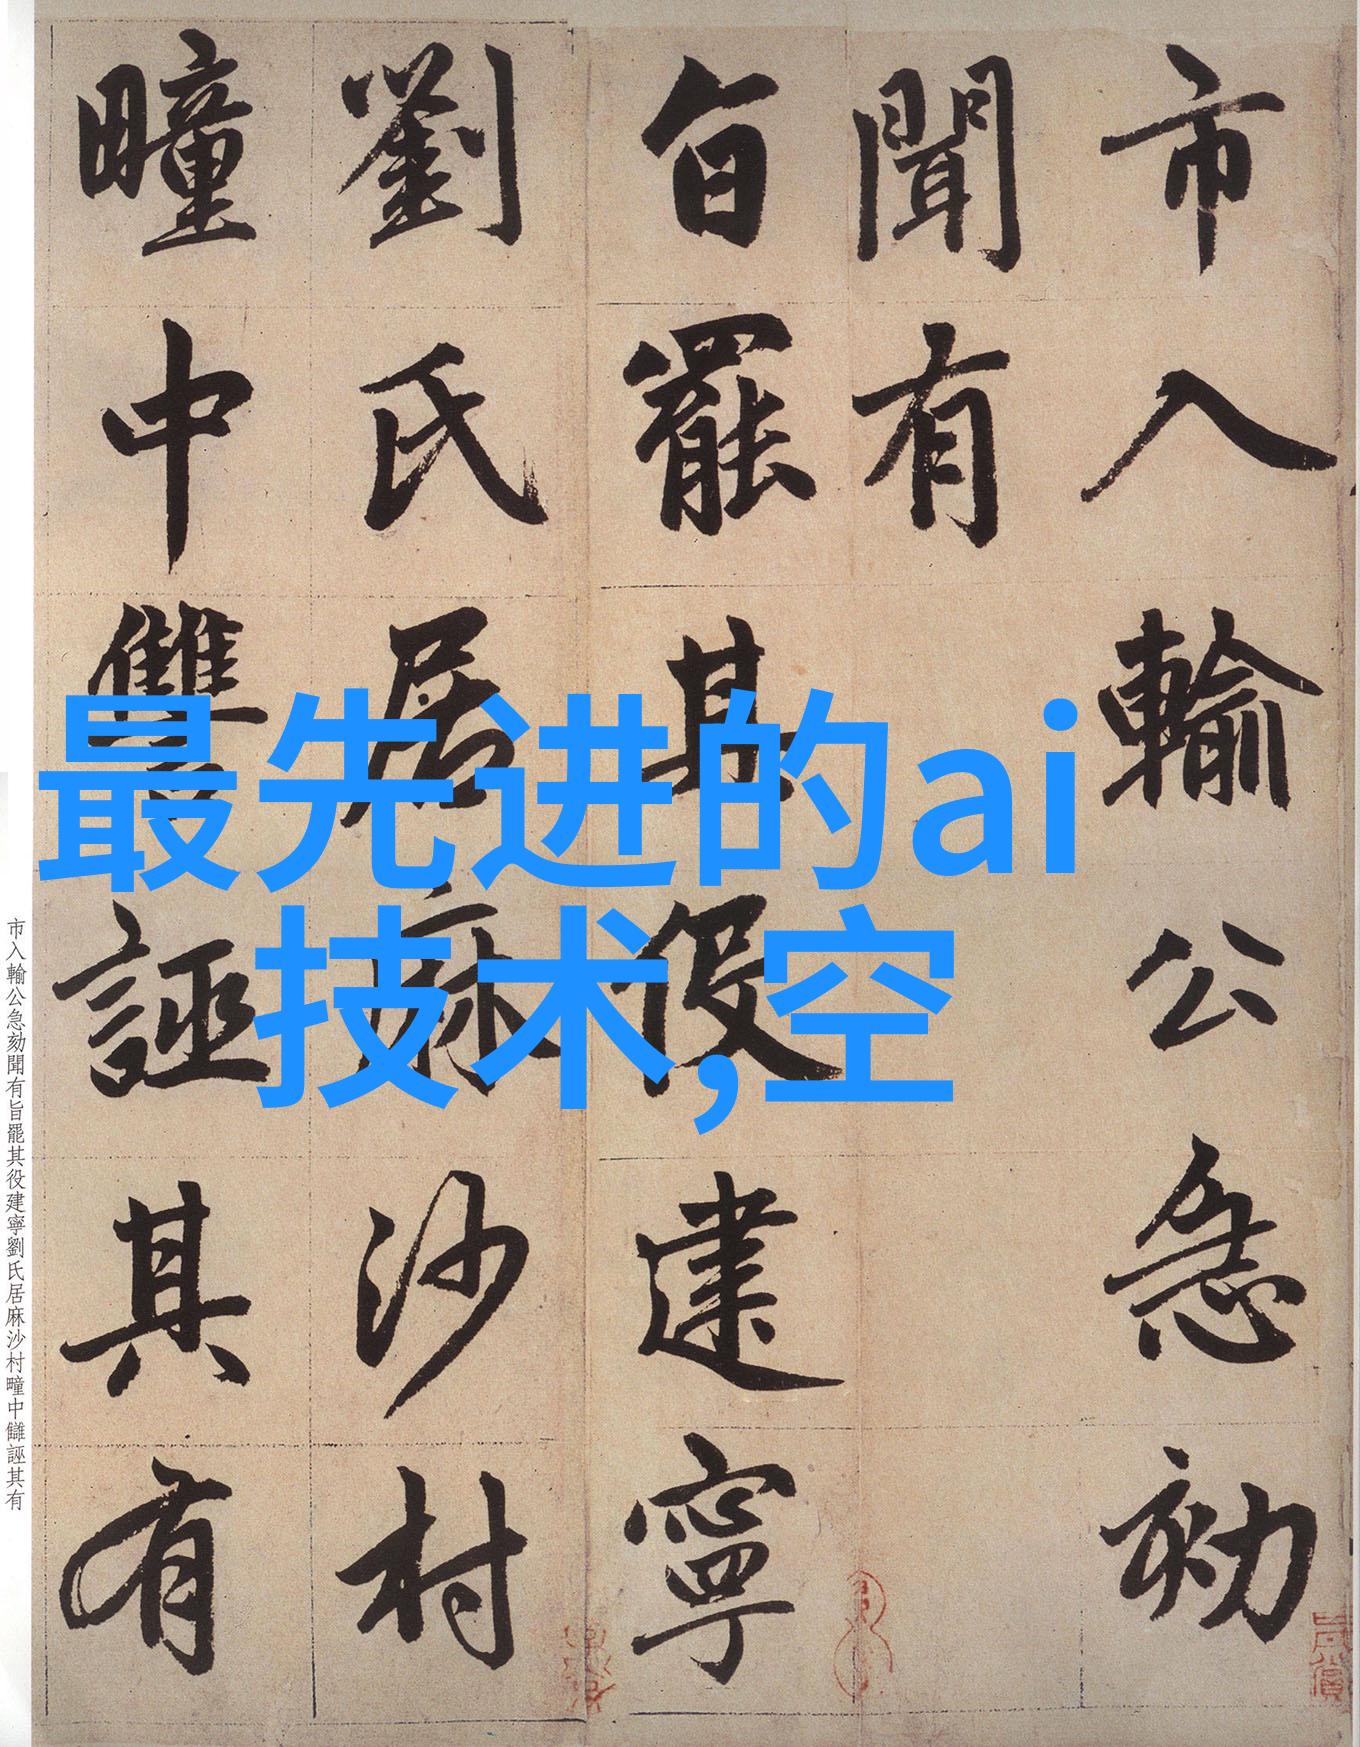 市入輸公急劾
聞有
旨罷其役建寧
劉氏居麻沙村
疃中讎誣其有
最先进的ai
技术,空
市入輸公急劾聞有旨罷其役建寧劉氏居麻沙村疃中讎誣其有